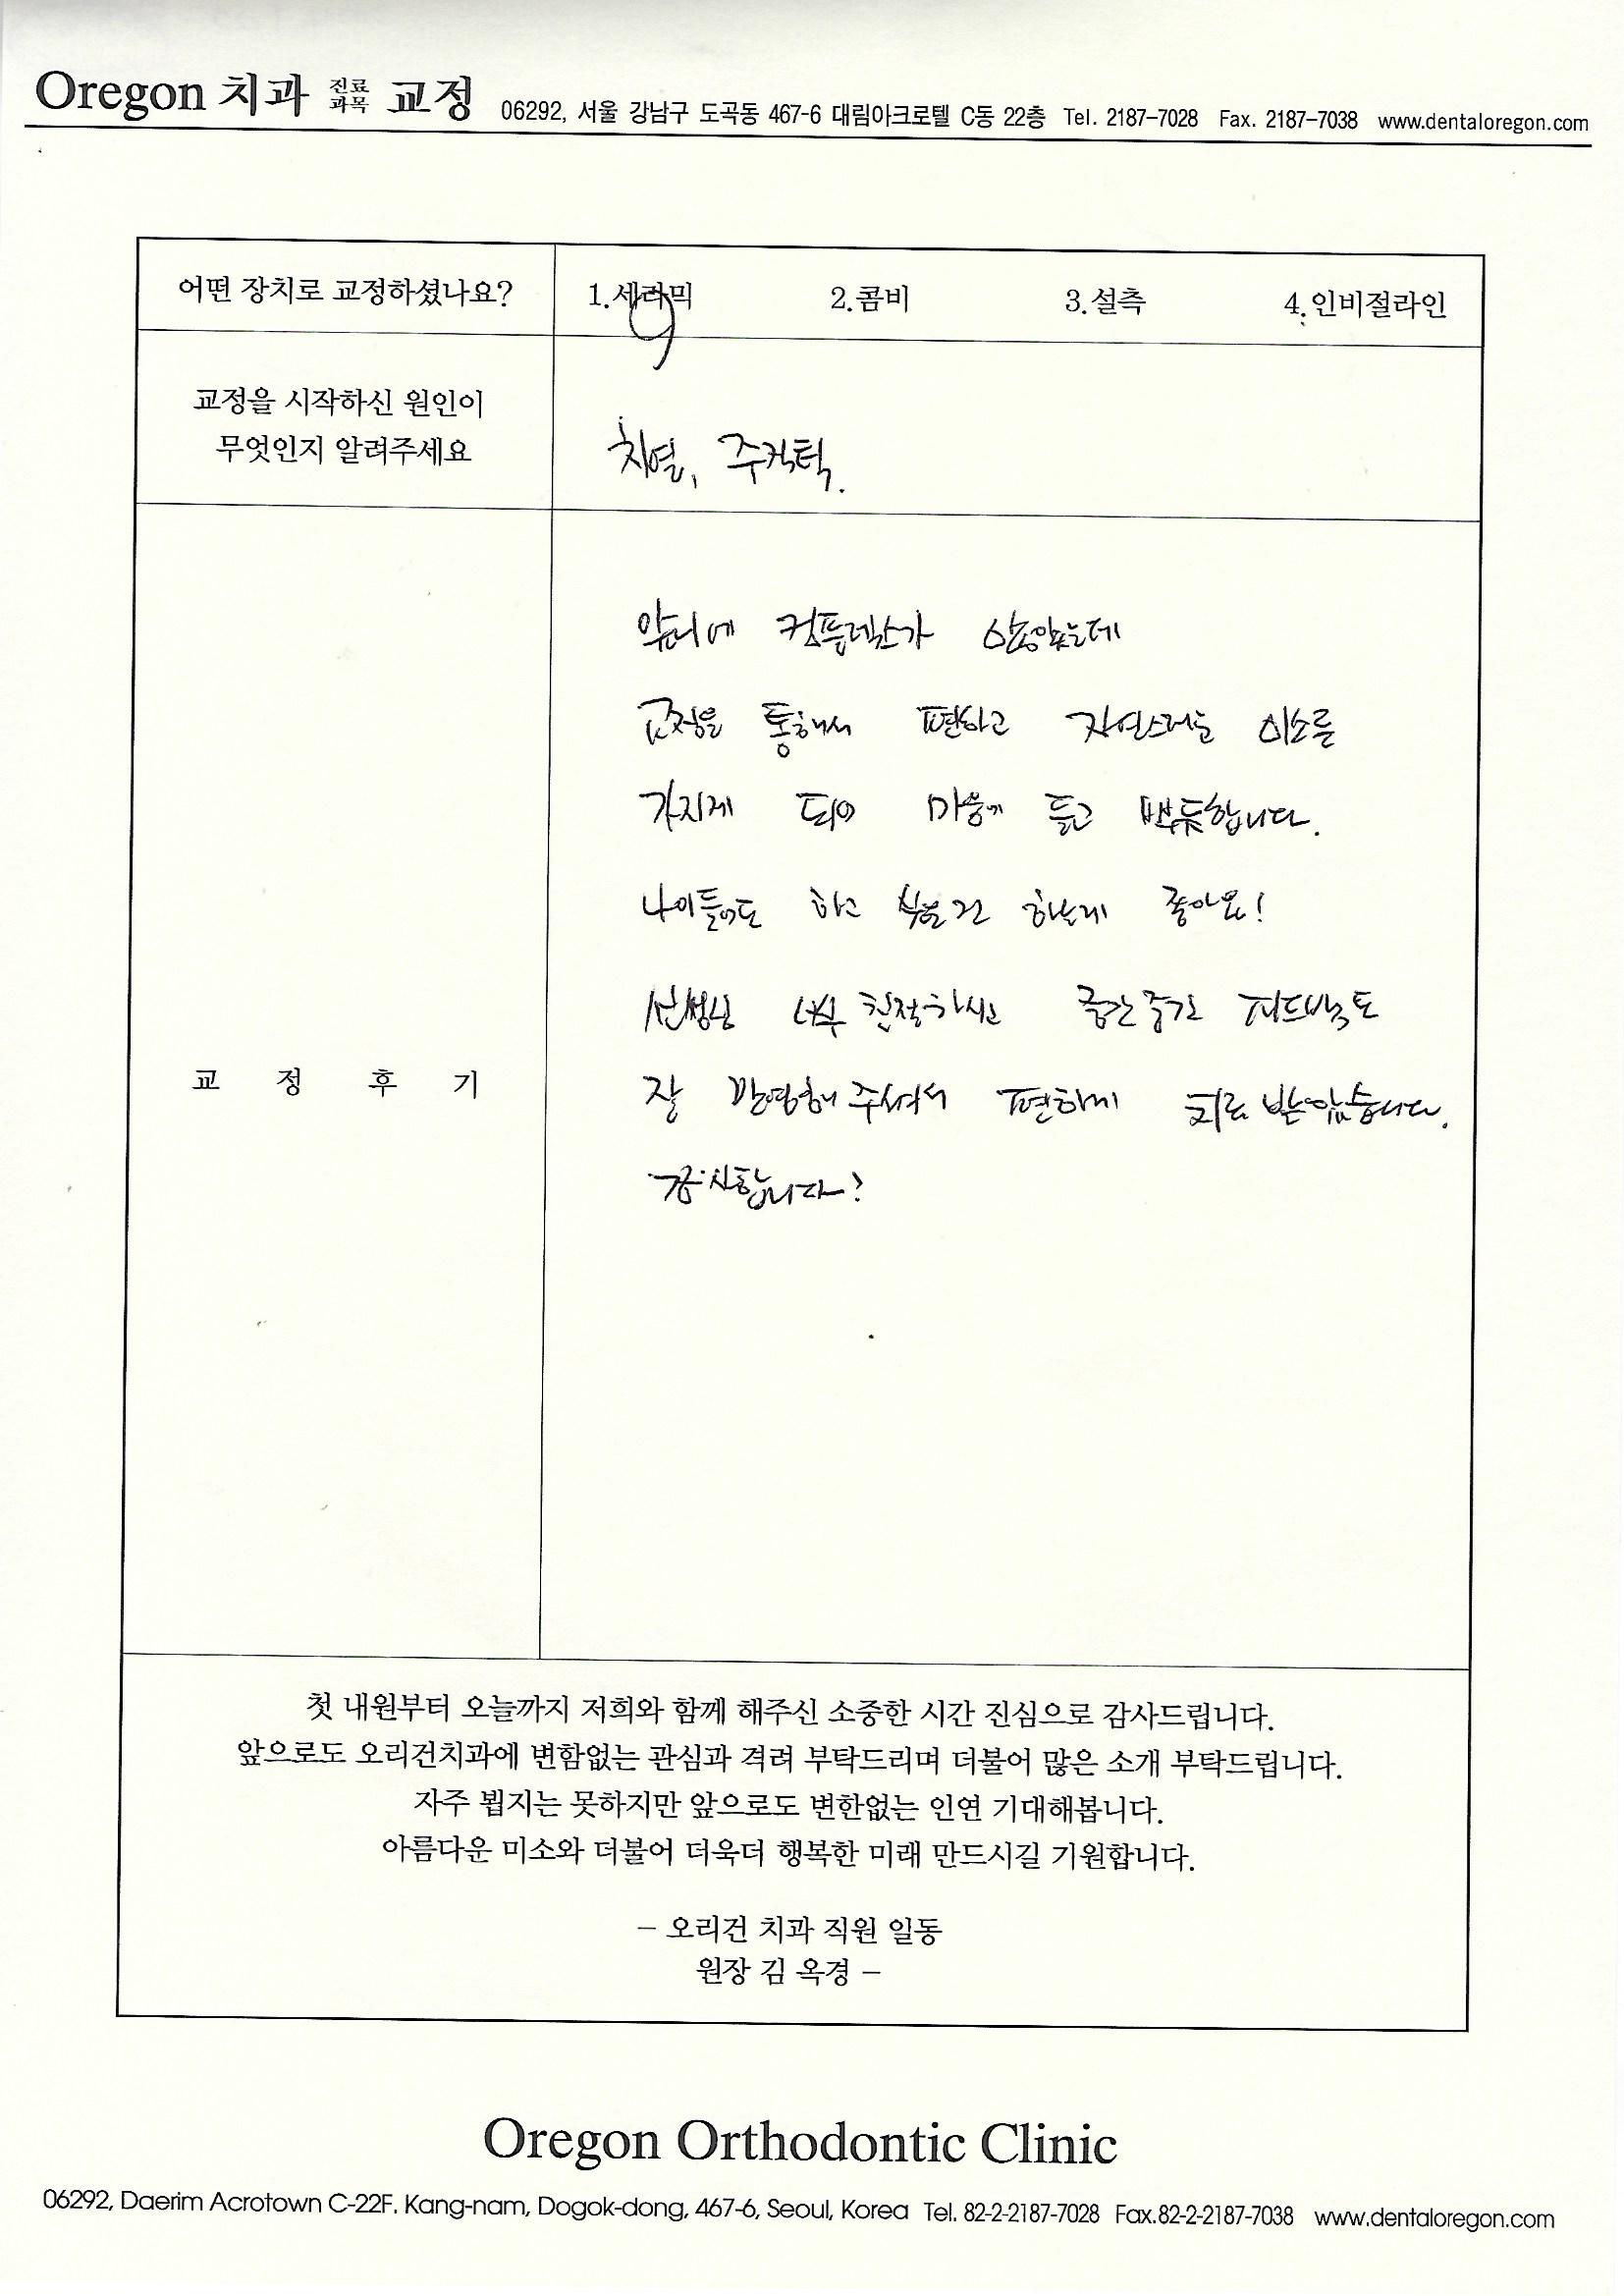 Oregon 치과 진료과목 교정 06292, 서울 강남구 도곡동 467-6 대림아크로텔 C동 22층 Tel. 2187-7028 Fax. 2187-7038 www.dentaloregon.com
어떤 장치로 교정하셨나요? 1.세라믹 2.콤비 3.설측 4.인비절라인
교정을 시작하신 원인이
무엇인지 알려주세요
치열, 주걱턱.
앞니에 컴플렉스가 있었는데
교정을 통해서 편하고 자연스러운 미소를
가지게 되어 마음에 들고 뿌듯합니다.
나이들어도 하고 하는게 좋아요!
선생님 너무 친절하시고 중간중간 피드백도
잘 반영해 주셔서 편하게 치료 받았습니다.
감사합니다!
교 정 후 기
첫 내원부터 오늘까지 저희와 함께 해주신 소중한 시간 진심으로 감사드립니다.
앞으로도 오리건치과에 변함없는 관심과 격려 부탁드리며 더불어 많은 소개 부탁드립니다.
자주 뵙지는 못하지만 앞으로도 변한없는 인연 기대해봅니다.
아름다운 미소와 더불어 더욱더 행복한 미래 만드시길 기원합니다.
– 오리건 치과 직원 일동
원장 김 옥경 –
Oregon Orthodontic Clinic
06292, Daerim Acrotown C-22F. Kang-nam, Dogok-dong, 467-6, Seoul, Korea Tel. 82-2-2187-7028 Fax.82-2-2187-7038 www.dentaloregon.com